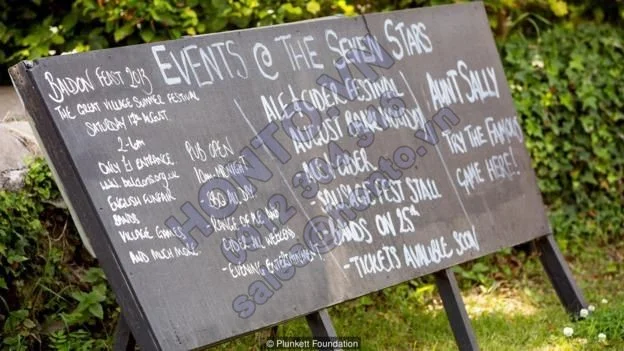 EVENTS @ THE SEVEN STARS
BALDON FEAST 2013
THE GREAT VILLAGE SUMMER FESTIVAL
SATURDAY
2-6pm
ONLY £1 ENTRANCE
ENGLISH FUNFAIR
BANDS
VILLAGE GAMES
AND MUCH MORE
PUB OPEN
10AM MIDNIGHT
- BBQ ALL DAY
- RANGE OF ALE AND
CIDER ALL WEEKEND
- EVENING ENTERTAINMENT
ALE & CIDER FESTIVAL
AUGUST BANK HOLIDAY
- SAUSAGE FEST STALL
- BANDS ON 25th
- TICKETS AVALIBLE SOON
AUNT SALLY
TRY THE FAMOUS
GAME HERE!
HONTO.VN
sales@honto.vn
© Plunkett Foundation